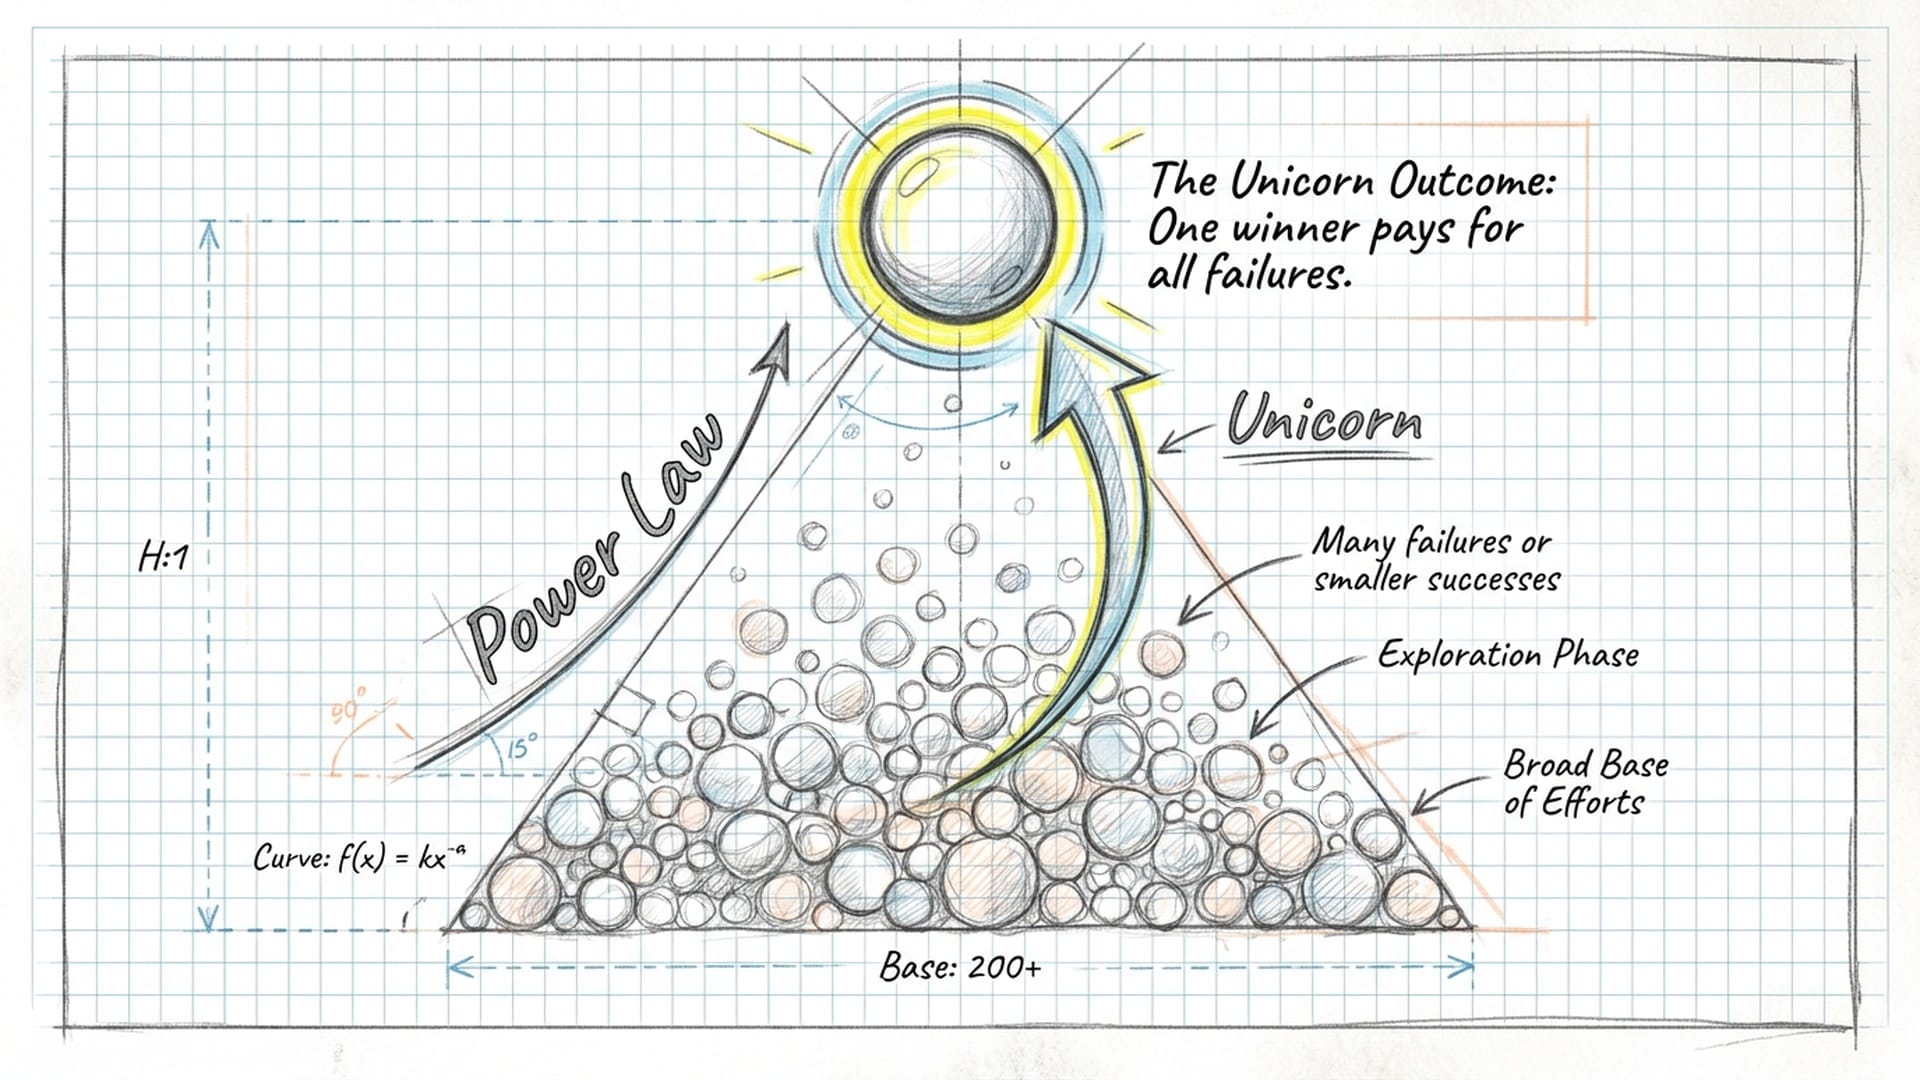 The Unicorn Outcome:
One winner pays for
all failures.
Unicorn
Power Law
Many failures or
smaller successes
H:1
Exploration Phase
90°
15°
Broad Base
of Efforts
Curve: f(x) = kx⁻ᵅ
Base: 200+